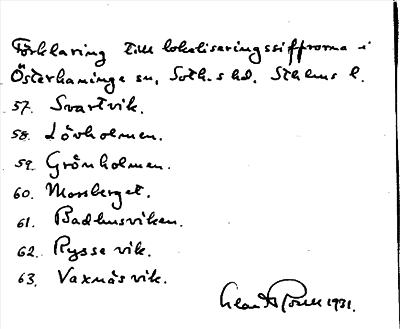 Förklaring till lokaliseringssiffrorna i
Österhaninge sn, Soth.s hd. Sthlms l.
57. Svartvik.
58. Lövholmen.
59. Grönholmen.
60. Morsberget.
61. Badhusviken.
62. Ryssevik.
63. Vaxnäsvik.
1931.